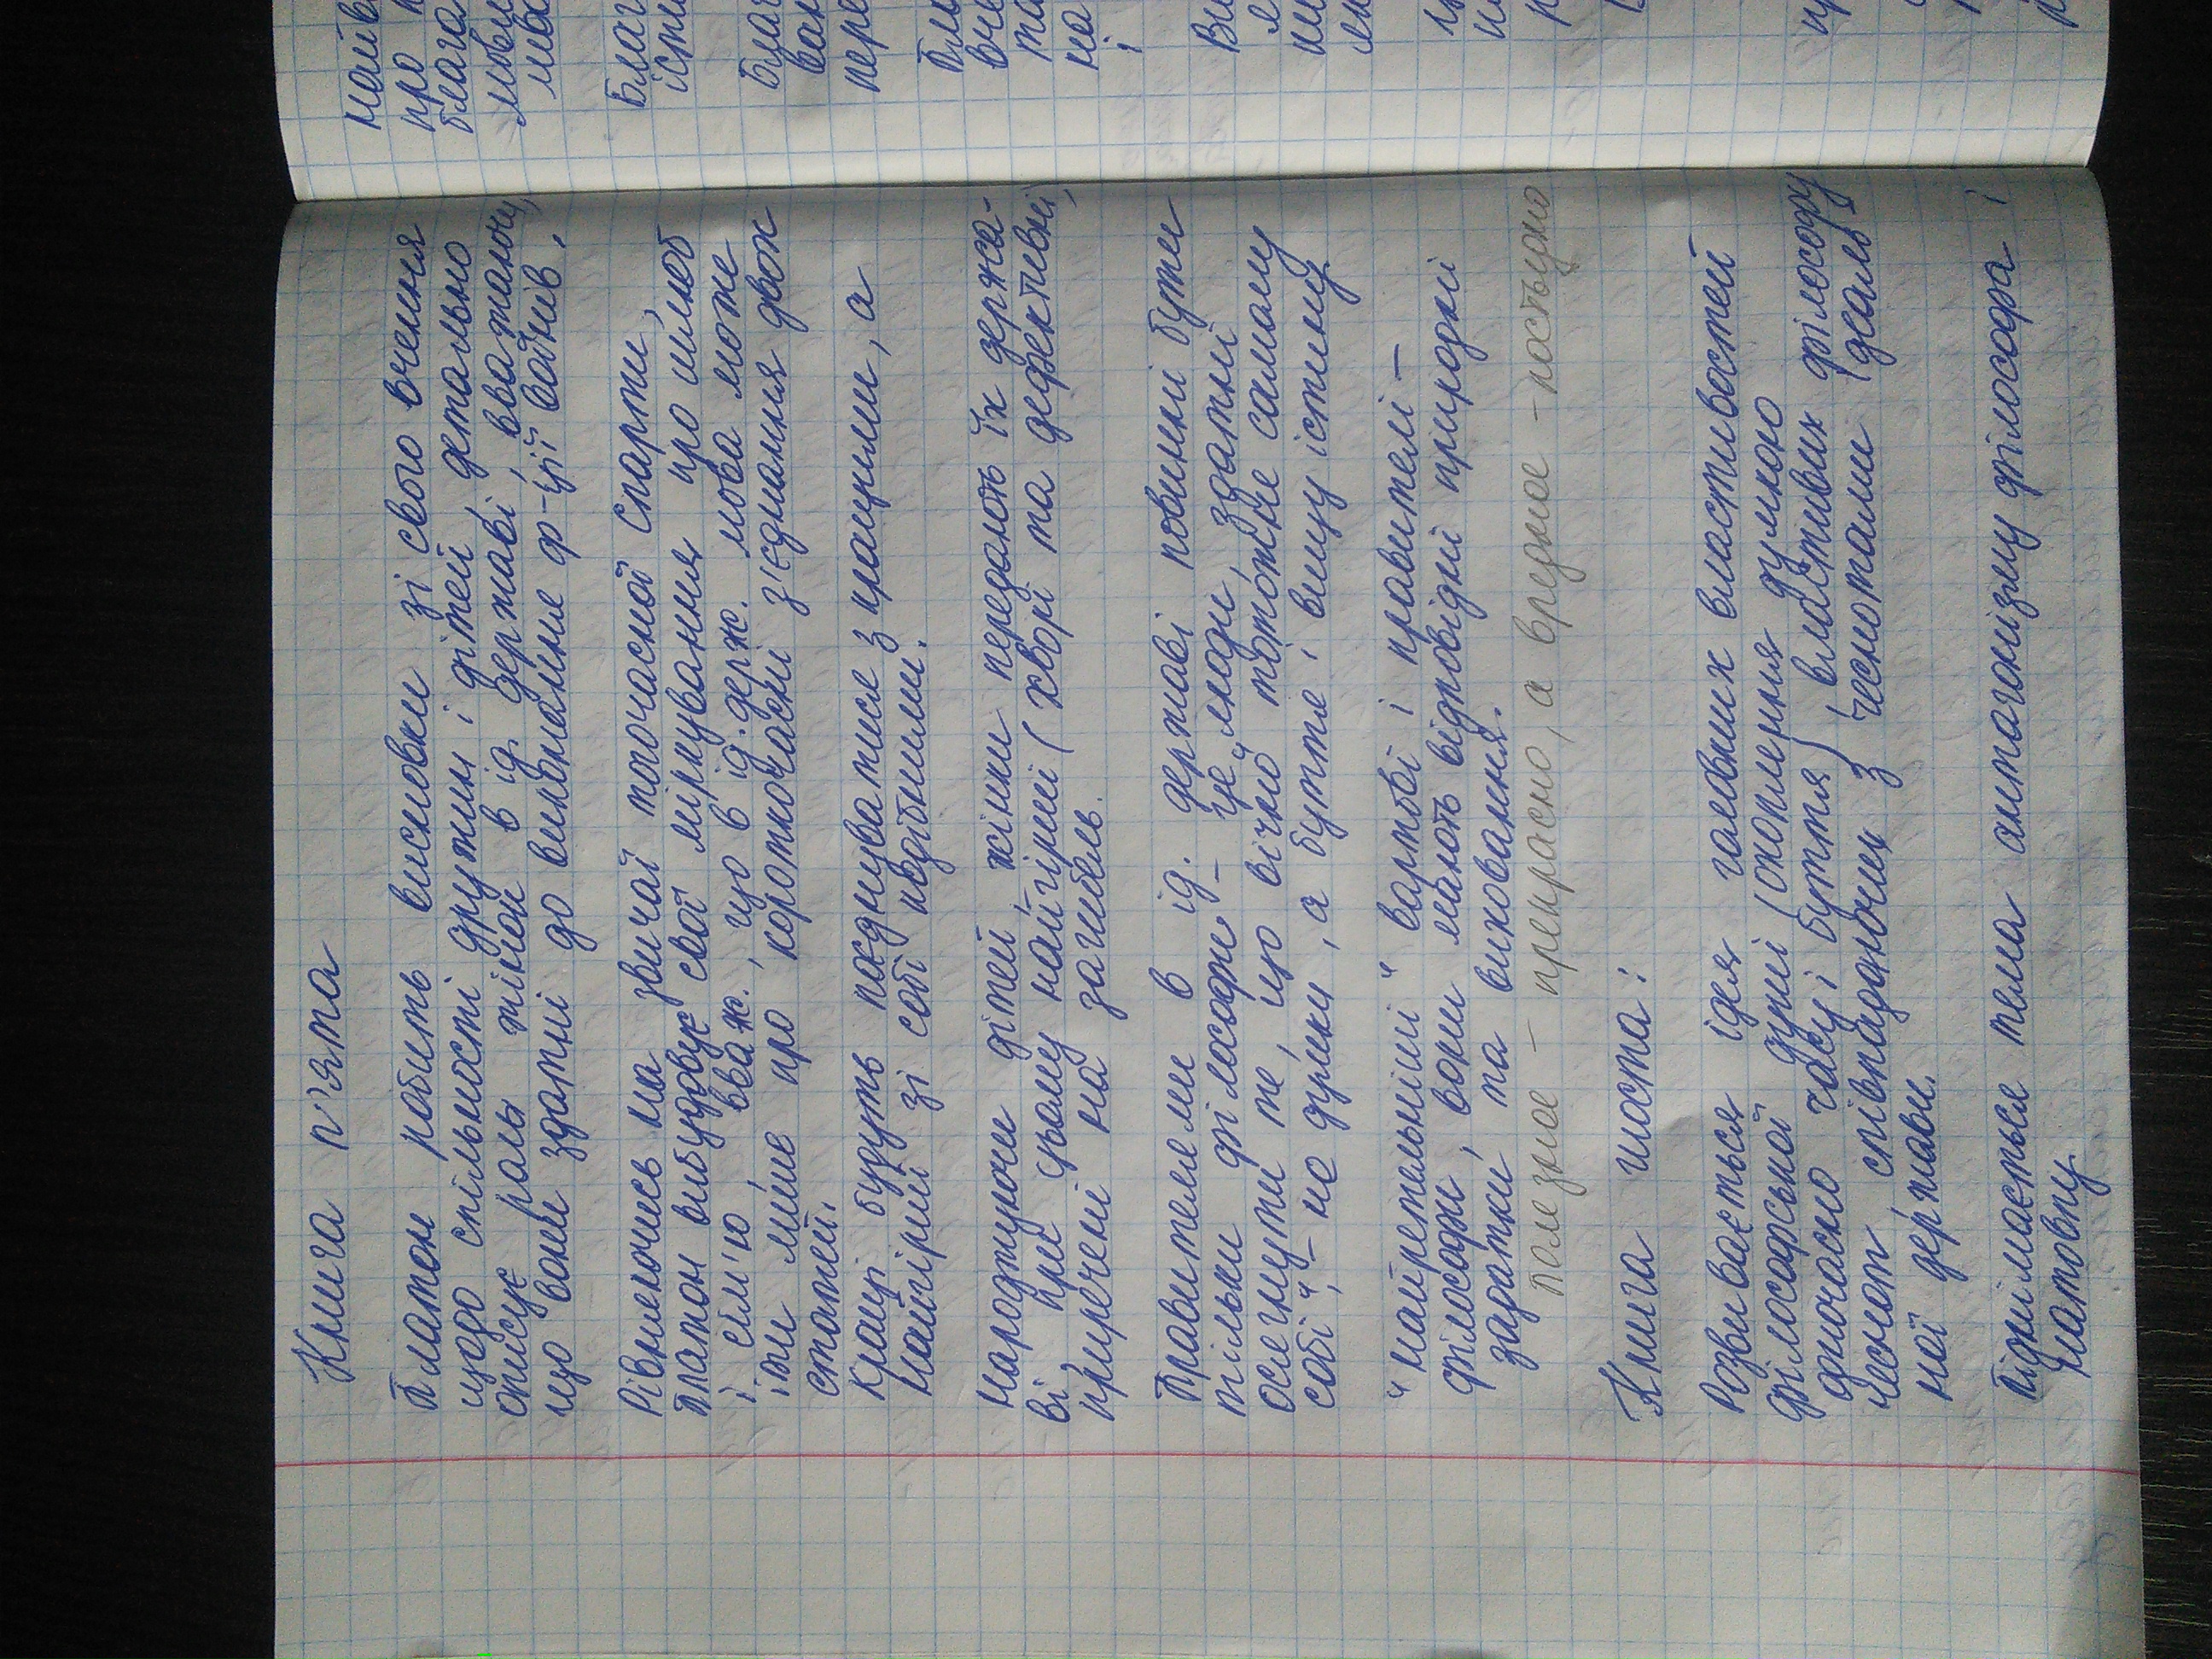 Книга п'ята
Платон робить висновки зі свого вчення
щодо спільності дружин і дітей детально
описує роль жінок в ід. державі, вважаючи,
що вони здатні до виконання ф-ції воїнів.
Рівняючись на звичаї тогочасної Спарти,
Платон вибудовує свої міркування про шлюб
і сім'ю, вваж., що в ід. держ. мова може
іти лише про короткочасні з'єднання двох
статей.
Кращі будуть поєднуватися з кращими, а
найгірші зі собі подібними.
Народжуючи дітей, жінки передають їх держа-
ві при цьому найгірші (хворі та дефективні)
приречені на загибель.
Правителями в ід. державі повинні бути
тільки філософи - це люди, здатні
осягнути те, що вічно тотожне самому
собі", - не думки, а буття і вищу істину.
"найретельніші" вартові і правителі -
філософи, вони мають відповідні природні
задатки, та виховання.
полезное - прекрасно, а вредное - постыдно
Книга шоста:
Розвивається ідея головних властивостей
філософської душі (охоплення думкою
одночасно часу і буття) властивих філософу
чеснот, співпадаючих з чеснотами ідеаль
ної держави.
Піднімається тема антагонізму філософа і
натовпу
найв
про
блага
Благ
істи
Благ
пере
вче
та
на
і